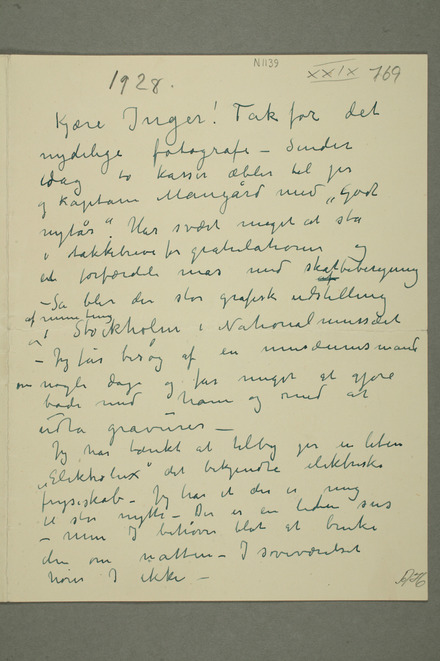 N1139
XXIX 169
1928.
Kjære Inger! Tak for det
nydelige fotografi – Sender
idag to kasser æbler til jer
og Kaptein Mangård med „Godt
nytår". Har svært meget at stå
i takkebreve for gratulationer og
et forfærdeli mas med skatbetegning
– Så blir der stor grafisk udstilling
af mine ting
i Stockholm i Nationalmuseet
– Jeg får besøg af en musæumsmand
om nogle dage og får meget at gjøre
både med ham og med at
udta gravurer –
Jeg har tænkt at tilby jer en liten
„Elektrolux" det bekjendte elektriske
fryseskab – Jeg har et der er mig
til stor nytte – Der er en liden sus
– men I behøver blot at bruke
den om natten – I soveværelset
høres I ikke –